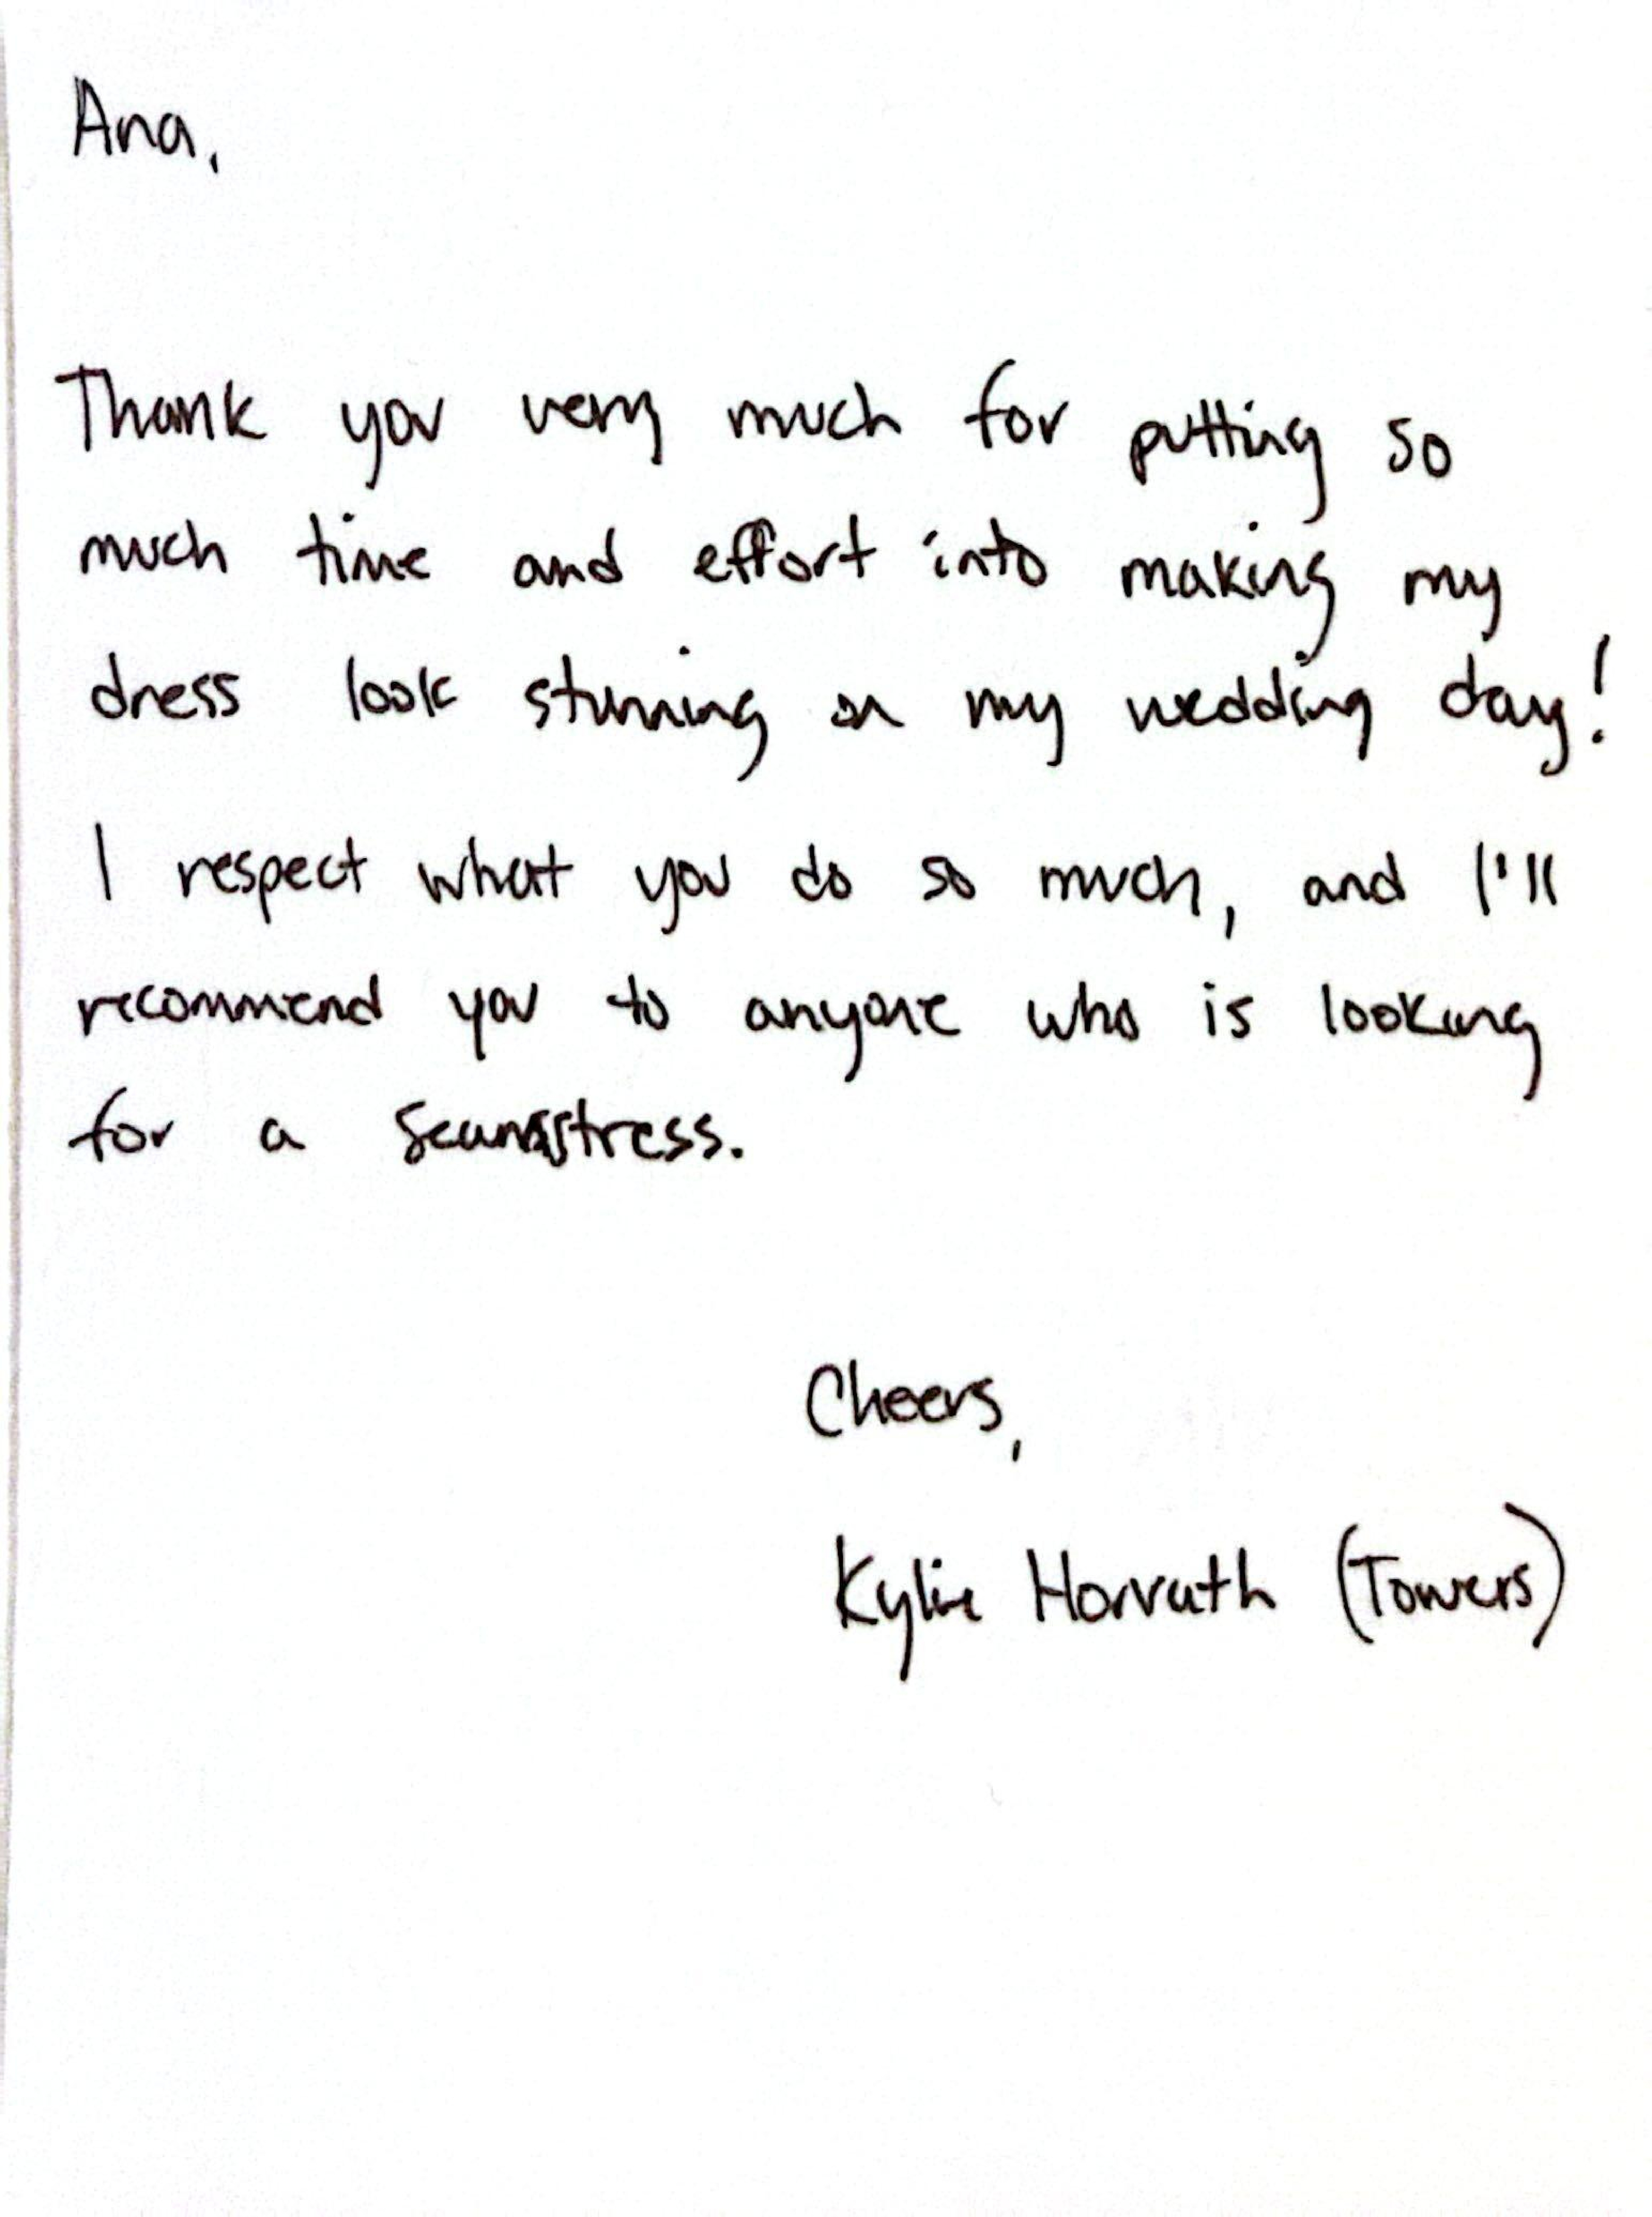 Ana,
Thank you very much for putting so
much time and effort into making my
dress look stunning on my wedding day!
I respect what you do so much, and I'll
recommend you to anyone who is looking
for a seamstress.
Cheers,
Kylie Horvath (Towers)